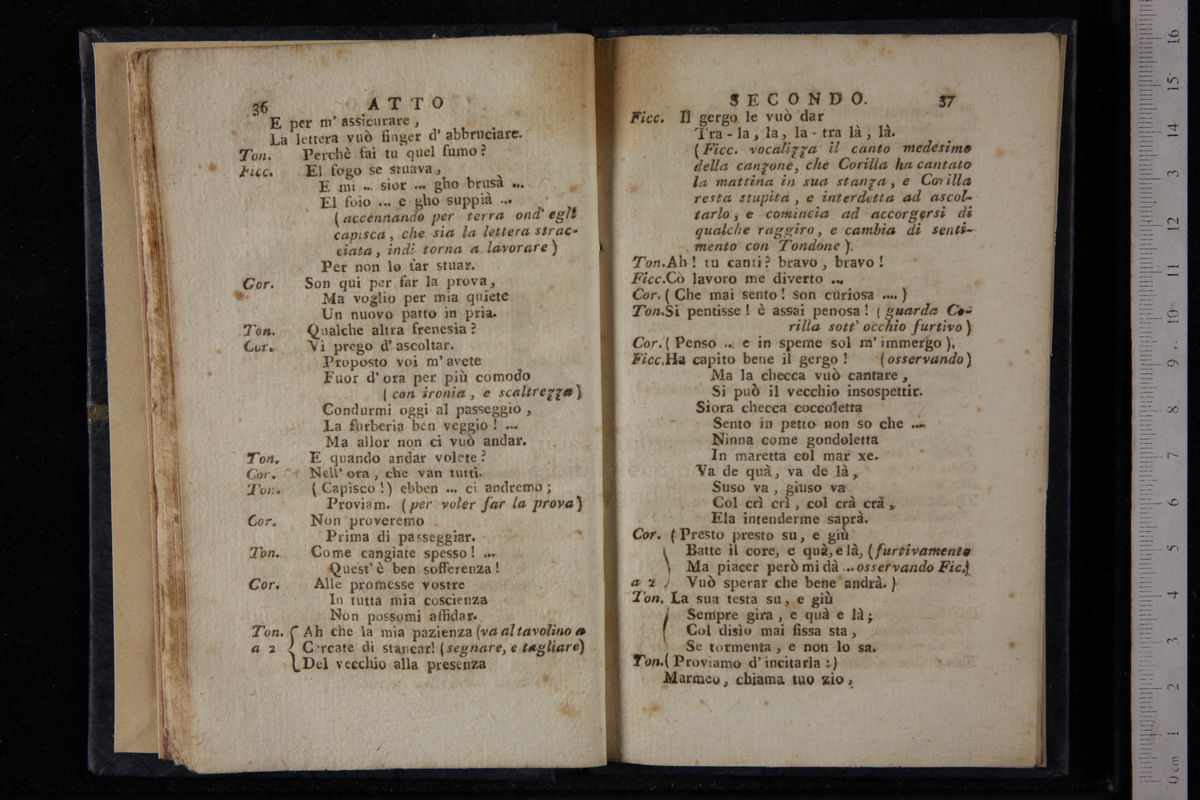 36 ATTO
E per m' assicurare,
La lettera vuò finger d' abbruciare.
Ton. Perchè fai tu quel fumo?
Ficc. El fogo se stuava,
E mi ... sior ... gho brusà ...
El foio ... e gho suppià ...
(accennando per terra ond' egli
capisca, che sia la lettera strac-
ciata, indi torna a lavorare)
Per non lo far stuar.
Cor. Son qui per far la prova,
Ma voglio per mia quiete
Un nuovo patto in pria.
Ton. Qualche altra frenesia?
Cor. Vi prego d' ascoltar.
Proposto voi m' avete
Fuor d' ora per più comodo
(con ironia, e scaltrezza)
Condurmi oggi al passeggio,
La furberia ben veggio! ...
Ma allor non ci vuò andar.
Ton. E quando andar volete?
Cor. Nell' ora, che van tutti.
Ton. (Capisco!) ebben ... ci andremo;
Proviam. (per voler far la prova)
Cor. Non proveremo
Prima di passeggiar.
Ton. Come cangiate spesso! ...
Quest' è ben sofferenza!
Cor. Alle promesse vostre
In tutta mia coscienza
Non possomi affidar.
Ton. Ah che la mia pazienza (va al tavolino a
a 2 Cercate di stancar! (segnare, e tagliare)
Del vecchio alla presenza
SECONDO. 37
Ficc. Il gergo le vuò dar
Tra - la, la, la - tra là, là.
(Ficc. vocalizza il canto medesimo
della canzone, che Corilla ha cantato
la mattina in sua stanza, e Corilla
resta stupita, e interdetta ad ascol-
tarlo, e comincia ad accorgersi di
qualche raggiro, e cambia di senti-
mento con Tondone).
Ton. Ah! tu canti? bravo, bravo!
Ficc. Cò lavoro me diverto ...
Cor. (Che mai sento! son curiosa ....)
Ton. Si pentisse! è assai penosa! (guarda Co-
rilla sott' occhio furtivo)
Cor. (Penso ... e in speme sol m' immergo),
Ficc. Ha capito bene il gergo! (osservando)
Ma la checca vuò cantare,
Si può il vecchio insospettir.
Siora checca coccoletta
Sento in petto non so che ...
Ninna come gondoletta
In maretta col mar xe.
Va de quà, va de là,
Suso va, giuso va
Col crì crì, col crà crà,
Ela intenderme saprà.
Cor. (Presto presto su, e giù
Batte il core, e quà, e là, (furtivamente
Ma piacer però mi dà ... osservando Fic.)
a 2 Vuò sperar che bene andrà.)
Ton. La sua testa su, e giù
Sempre gira, e quà e là;
Col disìo mai fissa sta,
Se tormenta, e non lo sa.
Ton. (Proviamo d' incitarla:)
Marmeo, chiama tuo zio,